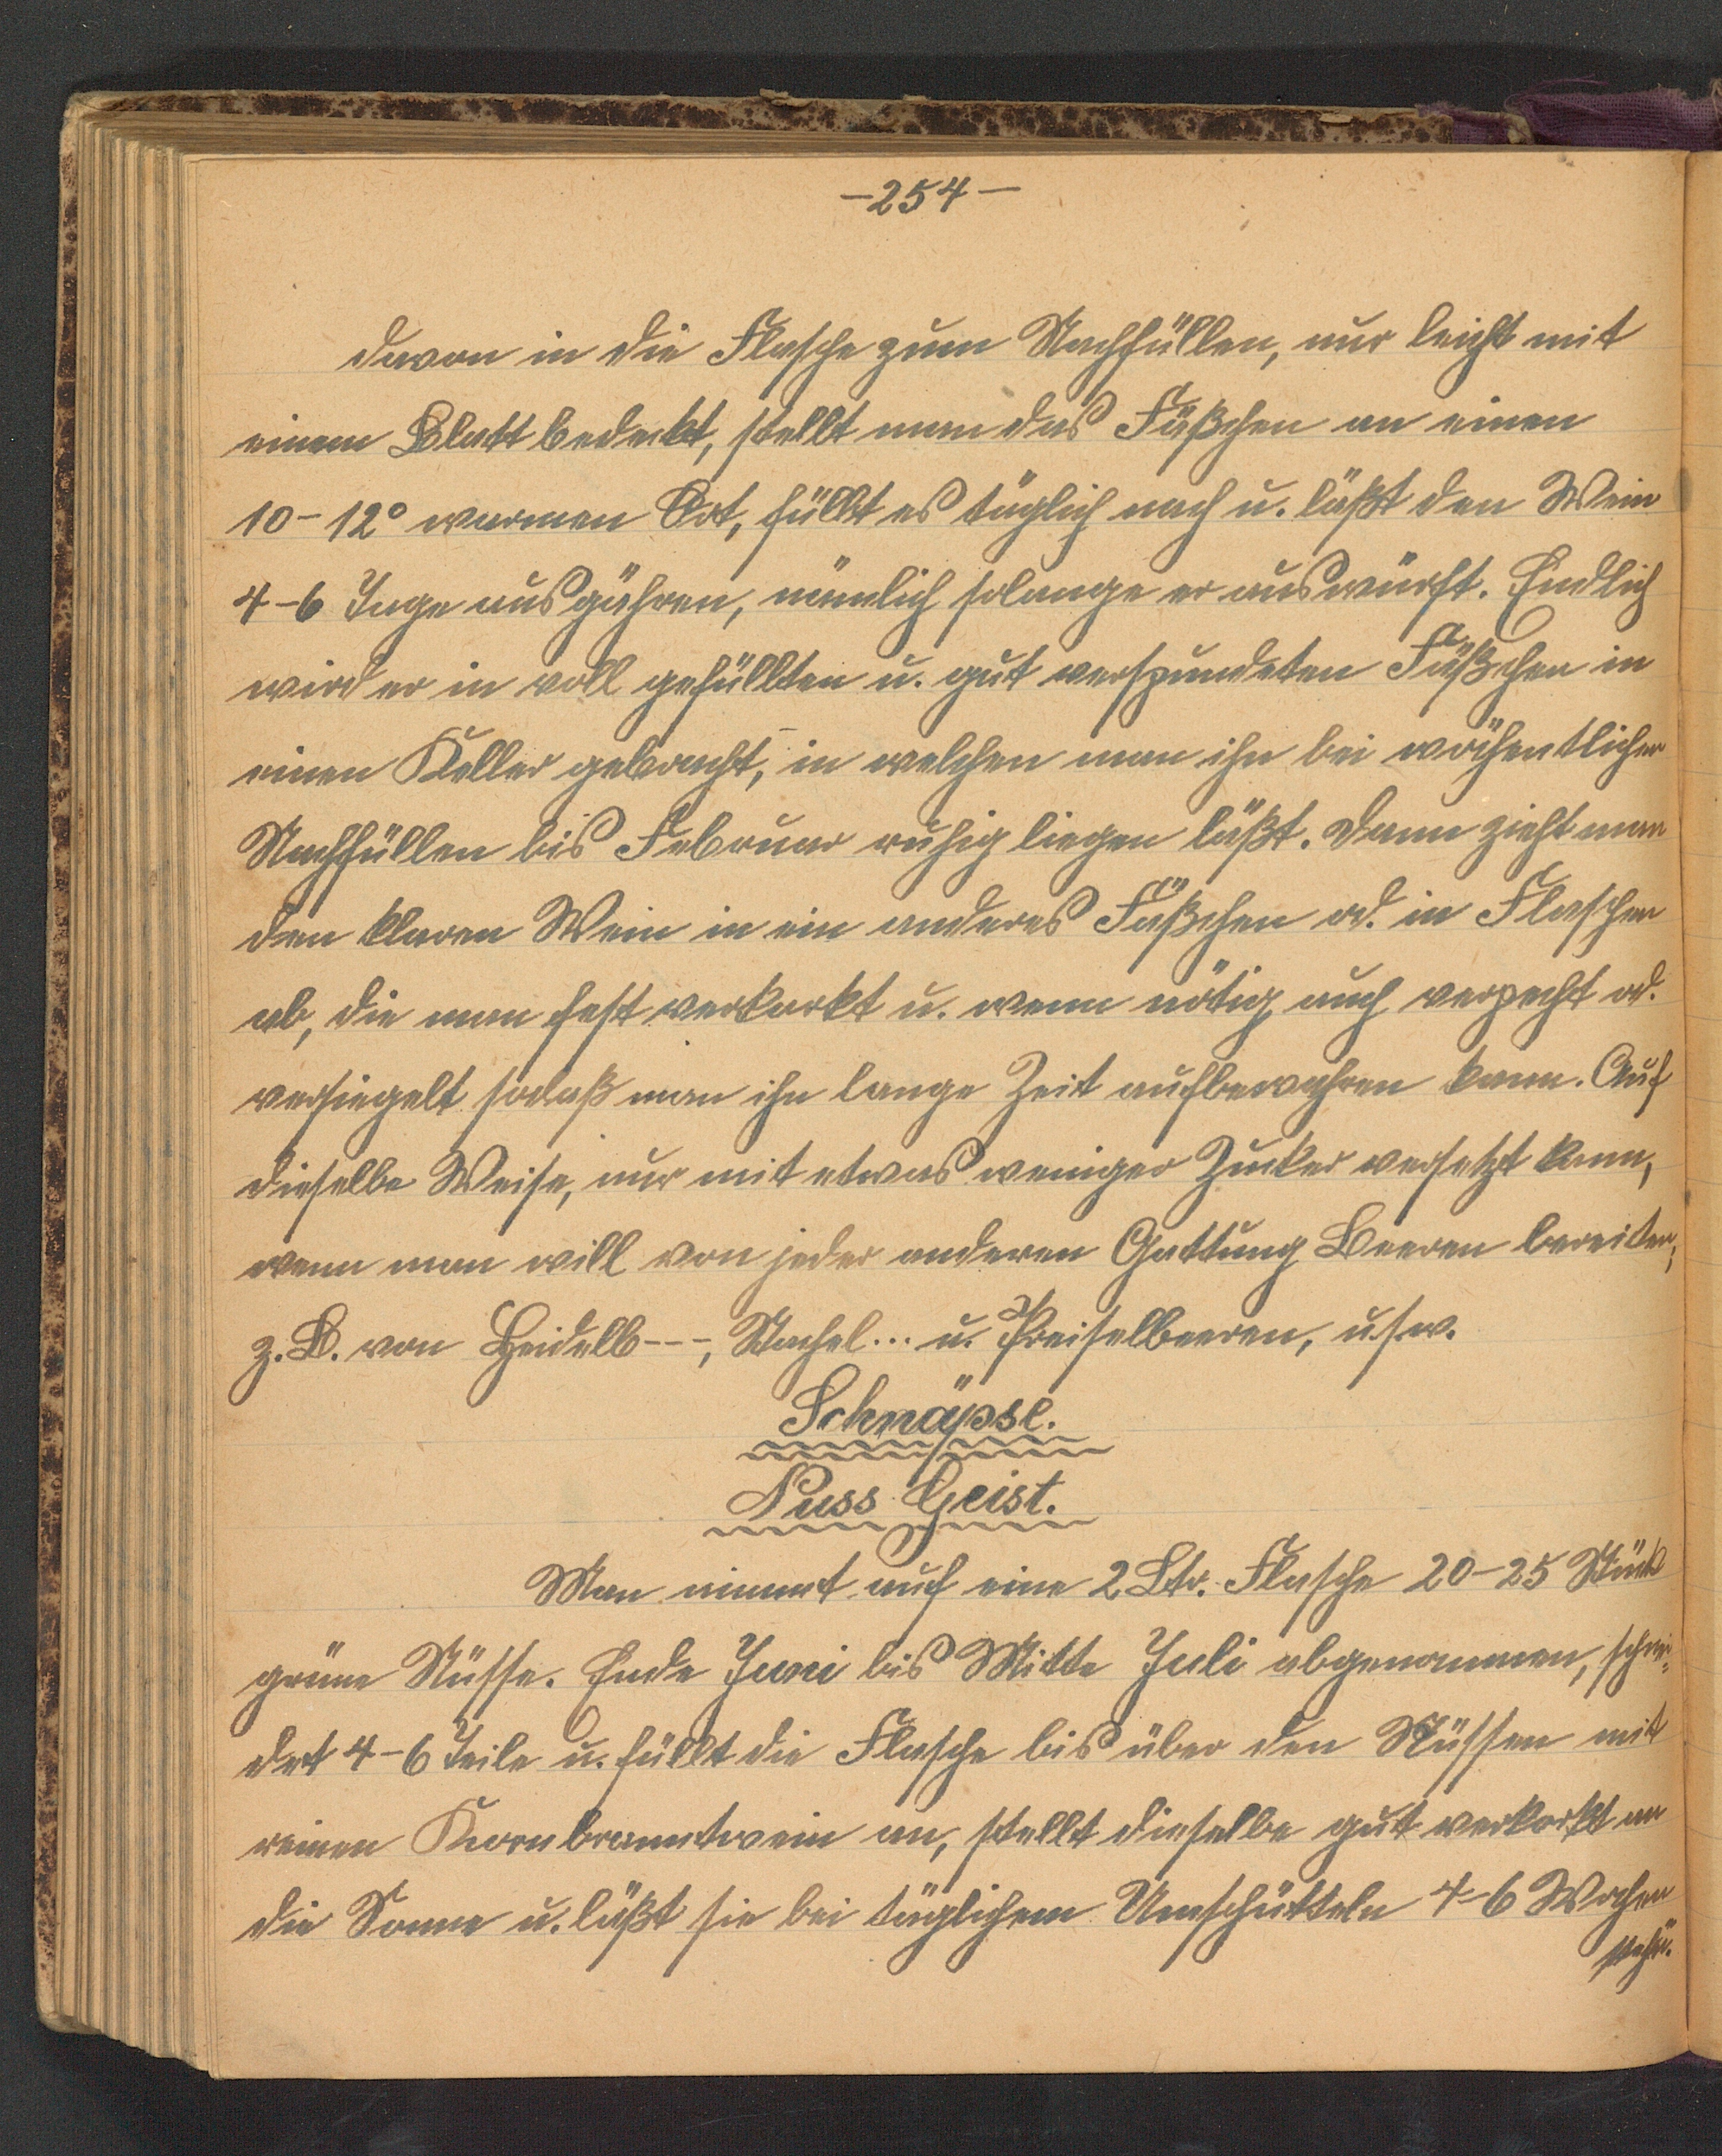 -254-
davon in die Flasche zum Nachfüllen, nur leicht mit
einem Blatt bedeckt, stellt man das Fäßchen an einen
10-12° warmen Ort, füllt es täglich nach u. läßt den Wein
4-6 Tage ausgähren, nämlich solange er auswürft. Endlich
wird er in voll gefüllten u. gut verspundeten Fäßchen in
einen Keller gebracht, in welchen man ihn bei wöchentlichen
Nachfüllen bis Februar ruhig liegen läßt. Dann zieht man
den klaren Wein in ein anderes Fäßchen od. in Flaschen
ab, die man fest verkorkt u. wenn nötig auch verpecht od.
versiegelt sodaß man ihn lange Zeit aufbewahren kann. Auf
dieselbe Weise, nur mit etwas weniger Zucker versetzt kann,
wenn man will von jeder anderen Gattung Beeren bereiten,
z. B. von Heidelb---, Stachel... u. Preiselbeeren, u.s.w.
Schnäpse.
Nuss Geist.
Man nimmt auf eine 2 Ltr. Flasche 20-25 Stück
grüne Nüsse. Ende Juni bis Mitte Juli abgenommen, schnei-
det 4-6 Teile u. füllt die Flasche bis über den Nüssen mit
reinen Kornbranntwein an, stellt dieselbe gut verkorkt an
die Sonne u. läßt sie bei täglichem Umschütteln 4-6 Wochen